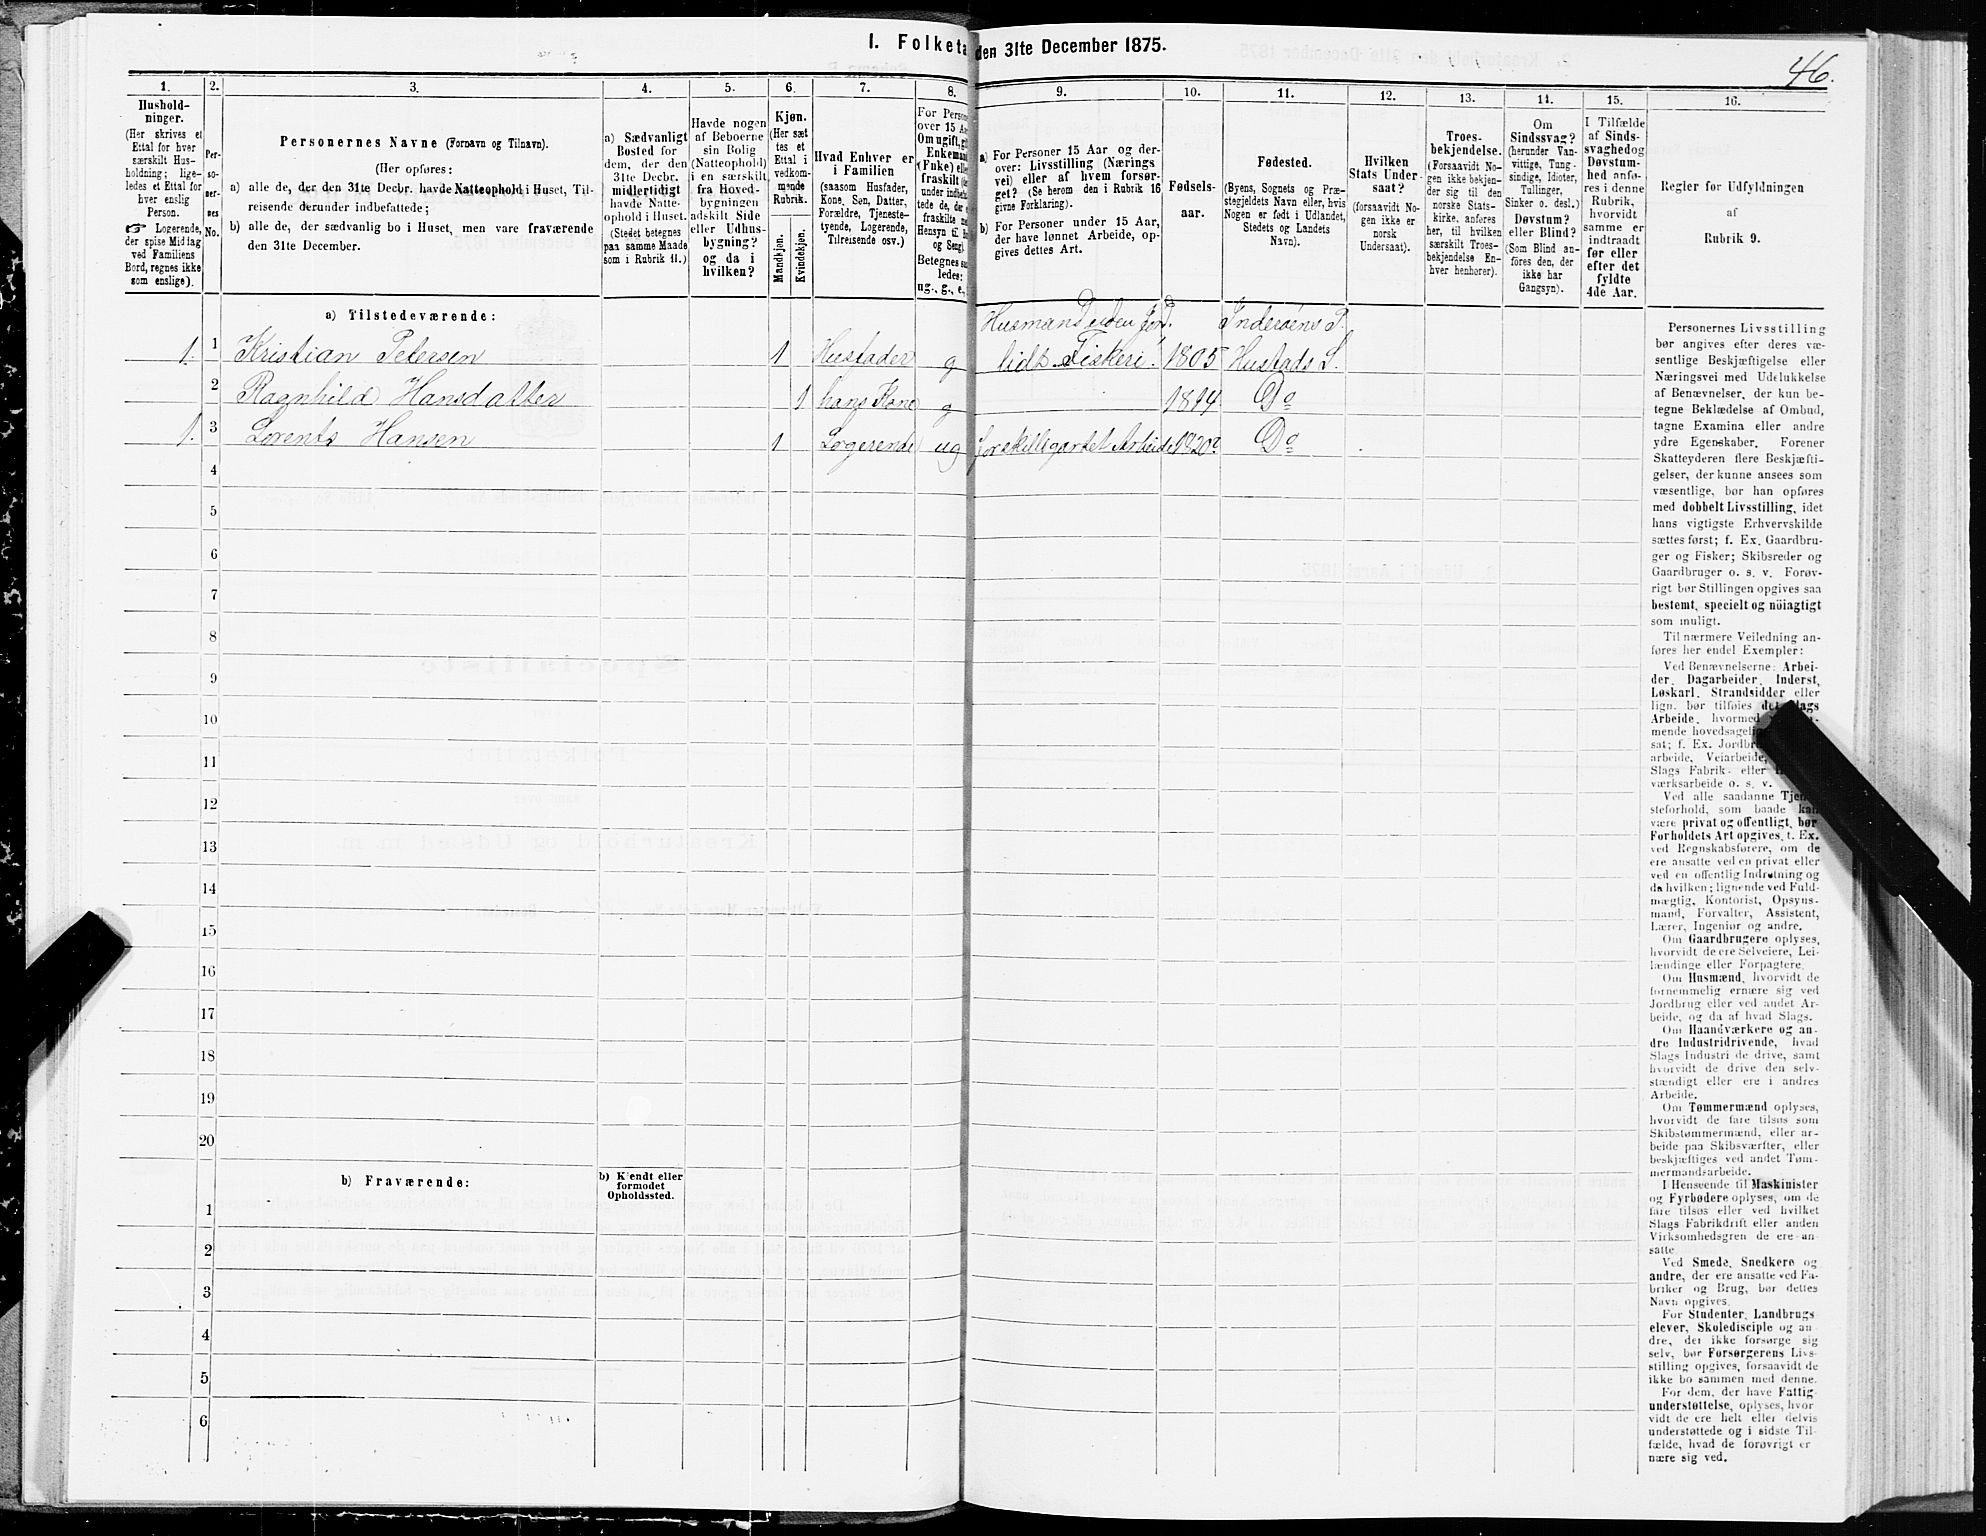 I. Folketa den 31te December 1875.
46.
1. 2. 3. 4. 5. 6. 7. 8. 9. 10. 11. 12. 13. 14. 15. 16.
Hushold-
ninger.
(Her skrives et
Ettal for hver
særskilt Hus-
holdning; lige-
ledes et Ettal for
hver enslig
Person.
☞ Logerende,
der spise Middag
ved Familiens
Bord, regnes ikke
som enslige).
Per-
so-
ner-
nes
No.
Personernes Navne (Fornavn og Tilnavn).
(Her opføres:
a) alle de, der den 31te Decbr. havde Natteophold i Huset, Til-
reisende derunder indbefattede;
b) alle de, der sædvanlig bo i Huset, men vare fraværende
den 31te December.
a) Sædvanligt
Bosted for
dem, der den
31te Decbr.
midlertidigt
havde Natte-
ophold i Huset.
(Stedet betegnes
paa samme Maade
som i Rubrik 11.)
Havde nogen
af Beboerne
sin Bolig
(Natteophold)
i en særskilt
fra Hoved-
bygningen
adskilt Side
eller Udhus-
bygning?
og da i
hvilken?
Kjøn.
(Her sæt
tes et
Ettal i
vedkom-
mende
Rubrik.
Mandkjøn.
Kvindekjøn.
Hvad Enhver er
i Familien
(saasom Husfader,
Kone, Søn, Datter,
Forældre, Tjeneste-
tyende, Logerende,
Tilreisende osv.)
For Person
over 15 Aa
Om ugift, gif
Enkemand
(Enke) elle
fraskilt
under indbefat
tede de, der
fraskilte
Hensyn til B
og Seng).
Betegnes saa
ledes:
ug., g., e.,
a) For Personer 15 Aar og der-
over: Livsstilling (Nærings
vei) eller af hvem forsør-
get? (Se herom den i Rubrik 16
givne Forklaring).
b) For Personer under 15 Aar,
der have lønnet Arbeide, op-
gives dettes Art.
Fødsels-
aar.
Fødested.
(Byens, Sognets og Præ-
stegjeldets Navn eller, hvis
Nogen er født i Udlandet,
Stedets og Landets
Navn).
Hvilken
Stats Under-
saat?
(forsaavidt No-
gen ikke er
norsk
Undersaat).
Troes-
bekjendelse.
(Forsaavidt No-
gen ikke bekjen-
der sig til den
norske Stats-
kirke, anføres
her, til hvilken
særskilt Troes-
bekjendelse En-
hver henhører).
Om
Sindssvag?
(herunder Van-
vittige, Tung-
sindige, Idioter,
Tullinger,
Sinker o. desl.)
Døvstum?
eller Blind?
(Som Blind an-
føres den, der
ikke har
Gangsyn).
I Tilfælde
af Sinds-
svaghed og
Døvstum-
hed anfø-
res i denne
Rubrik,
hvorvidt
samme er
indtraadt
før eller
efter det
fyldte
4de Aar.
Regler for Udfyldningen
af
Rubrik 9.
a) Tilstedeværende:
Husmand uden Jord. Inderøens P.
1. 1 Kristian Petersen 1 Husfader g lidt Fiskeri 1805 Hustads S.
2 Ragnhild Hansdatter 1 hans Kone g 1814 Do
1. 3 Lorents Hansen 1 Logerende ug forskilligartet Arbeide 1820 Do
4
5
6
7
8
9
10
11
12
13
14
15
16
17
18
19
20
b) Fraværende:
b) Kjendt eller
formodet
Opholdssted.
1
2
3
4
5
6
Personernes Livsstilling
bør angives efter deres væ-
sentlige Beskjæftigelse eller
Næringsvei med Udelukkelse
af Benævnelser, der kun be-
tegne Beklædelse af Ombud,
tagne Examina eller andre
ydre Egenskaber. Forener
Skatteyderen flere Beskjæfti-
gelser, der kunne ansees som
væsentlige, bør han opføres
med dobbelt Livsstilling, idet
hans vigtigste Erhvervskilde
sættes først; f. Ex. Gaardbru-
ger og Fisker; Skibsreder og
Gaardbruger o. s. v. Forøv-
rigt bør Stillingen opgives saa
bestemt, specielt og nöiagtigt
som muligt.
Til nærmere Veiledning an-
føres her endel Exempler:
Ved Benævnelserne: Arbei-
der, Dagarbeider, Inderst,
Løskarl, Strandsidder eller
lign. bør tilføies det Slags
Arbeide, hvormed
mende hovedsagelig
sat; f. Ex. Jordbr
arbeide, Veiarbeide,
Slags Fabrik- eller
værksarbeide o. s. v.
Ved alle saadanne Tjen
steforhold, som baade kan
være privat og offentligt, bør
Forholdets Art opgives, t. Ex.
ved Regnskabsførere, om de
ere ansatte ved en privat eller
ved en offentlig Indretning og
da hvilken; lignende ved Fuld-
mægtig, Kontorist, Opsyns-
mand, Forvalter, Assistent,
Lærer, Ingeniør og andre.
Om Gaardbrugere oplyses,
hvorvidt de ere Selveiere, Lei-
lændinge eller Forpagtere.
Om Husmænd, hvorvidt de
fornemmelig ernære sig ved
Jordbrug eller ved andet Ar-
beide, og da af hvad Slags.
Om Haandværkere og an-
dre Industridrivende, hvad
Slags Industri de drive, samt
hvorvidt de drive den selv-
stændigt eller ere i andres
Arbeide.
Om Tømmermænd oplyses,
hvorvidt de fare tilsøs som
Skibstømmermænd, eller ar-
beide paa Skibsværfter, eller
beskjæftiges ved andet Tøm-
mermandsarbeide.
I Henseende til Maskinister
og Fyrbødere oplyses, om de
fare tilsøs eller ved hvilket
Slags Fabrikdrift eller anden
Virksomhedsgren de ere an-
satte.
Ved Smede, Snedkere og
andre, der ere ansatte ved Fa-
briker og Brug, bør dettes
Navn opgives.
For Studenter, Landbrugs
elever, Skoledisciple og an-
dre, der ikke forsørge sig
selv, bør Forsørgerens Livs-
stilling opgives, forsaavidt de
ikke bo sammen med denne.
For dem, der have Fattig-
understøttelse, oplyses, hvor
vidt de ere helt eller delvis
understøttede og i sidste Til-
fælde, hvad de forøvrigt er
nære sig ved.